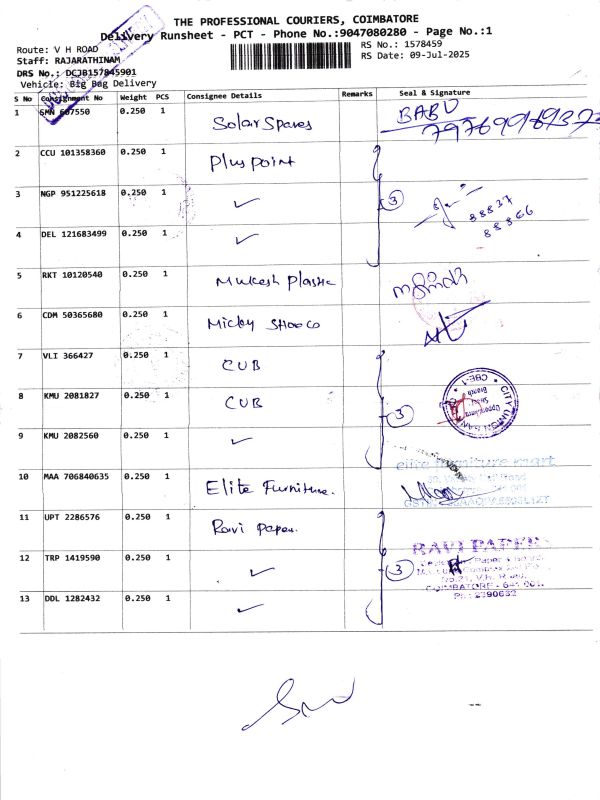 THE PROFESSIONAL COURIERS, COIMBATORE
Delivery Runsheet - PCT - Phone No.:9047080280 - Page No.:1
Route: V H ROAD
RS No.: 1578459
Staff: RAJARATHINAM
RS Date: 09-Jul-2025
DRS No.: DCJB157845901
Vehicle: Big Bag Delivery
S No Consignment No Weight PCS Consignee Details Remarks Seal & Signature
1 SMN 607550 0.250 1 Solar Spares BABU
2 CCU 101358360 0.250 1 Pluspoint
3 NGP 951225618 0.250 1 ✓ 3
88837
88866
4 DEL 121683499 0.250 1 ✓
5 RKT 10120540 0.250 1 Mukesh Plastic
6 CDM 50365680 0.250 1 Micky Shooco
7 VLI 366427 0.250 1 CUB
8 KMU 2081827 0.250 1 CUB 3
CITY UNION BAN
CBE-1
9 KMU 2082560 0.250 1 ✓
10 MAA 706840635 0.250 1 Elite Furniture.
elite furniture mart
11 UPT 2286576 0.250 1 Ravi Paper.
12 TRP 1419590 0.250 1 ✓ 3
RAVI PAPER
No.21, V.H. Road,
COIMBATORE - 641 001.
Ph : 2390632
13 DDL 1282432 0.250 1 ✓